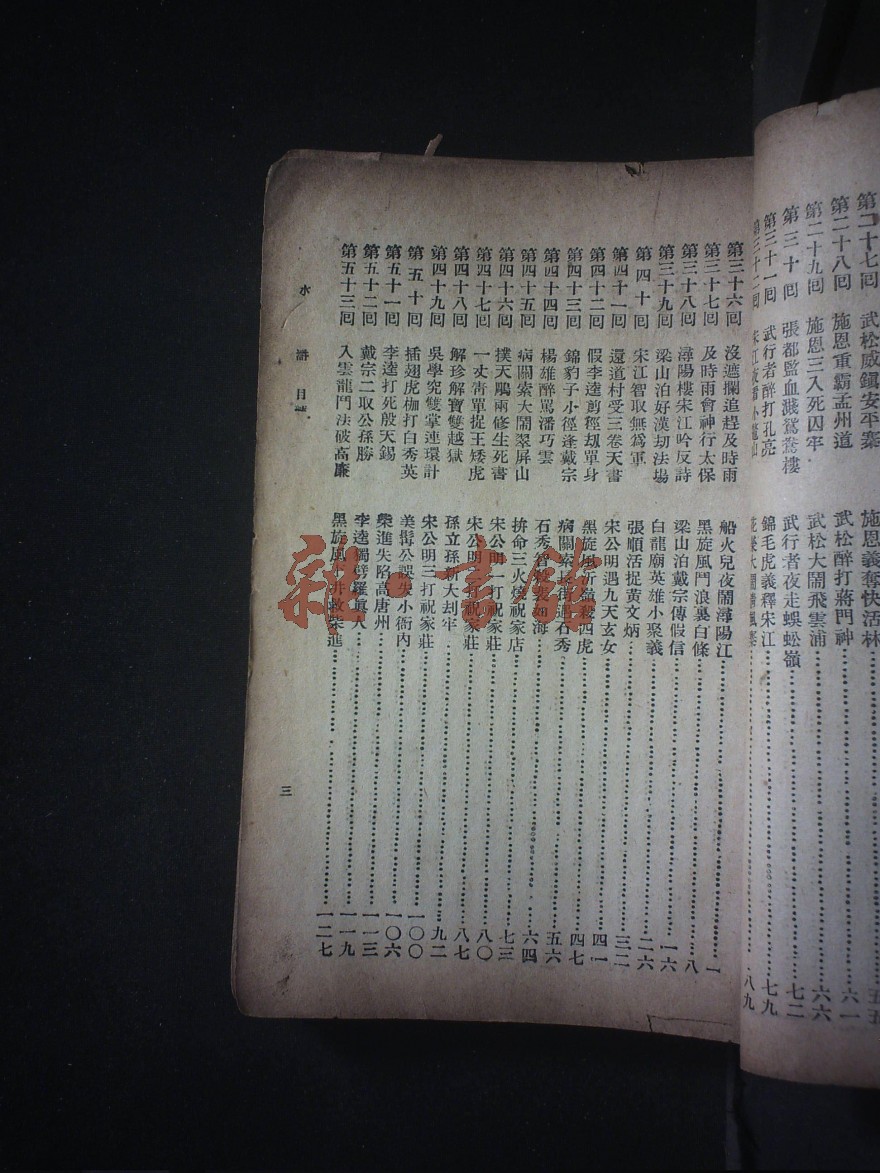 第二十七囘 武松威鎮安平寨 施恩義奪快活林 五五
第二十八囘 施恩重霸孟州道 武松醉打蔣門神 六一
第二十九囘 施恩三入死囚牢 武松大鬧飛雲浦 六六
第三十囘 張都監血濺鴛鴦樓 武行者夜走蜈蚣嶺 七二
第三十一囘 武行者醉打孔亮 錦毛虎義釋宋江 七九
第三十二囘 八九
第三十六囘 沒遮攔追趕及時雨 船火兒夜鬧潯陽江 一
第三十七囘 及時雨會神行太保 黑旋風鬥浪裏白條 八
第三十八囘 潯陽樓宋江吟反詩 梁山泊戴宗傳假信 一六
第三十九囘 梁山泊好漢刧法場 白龍廟英雄小聚義 二六
第四十囘 宋江智取無爲軍 張順活捉黃文炳 三二
第四十一囘 還道村受三卷天書 宋公明遇九天玄女 四一
第四十二囘 假李逵剪徑刧單身 黑旋風沂嶺殺四虎 四七
第四十三囘 錦豹子小徑逢戴宗 病關索長街遇石秀 五六
第四十四囘 楊雄醉罵潘巧雲 石秀智殺裴如海 六四
第四十五囘 病關索大鬧翠屏山 拚命三火燒祝家店 七三
第四十六囘 撲天鵰兩修生死書 宋公明一打祝家莊 八〇
第四十七囘 一丈靑單捉王矮虎 宋公明二打祝家莊 八七
第四十八囘 解珍解寶雙越獄 孫立孫新大刦牢 九二
第四十九囘 吳學究雙掌連環計 宋公明三打祝家莊 一〇〇
第五十囘 插翅虎枷打白秀英 美髯公誤失小衙內 一〇六
第五十一囘 李逵打死殷天錫 柴進失陷高唐州 一一三
第五十二囘 戴宗二取公孫勝 李逵獨劈羅眞人 一一九
第五十三囘 入雲龍鬥法破高廉 黑旋風下井救柴進 一二七
水滸 目
三